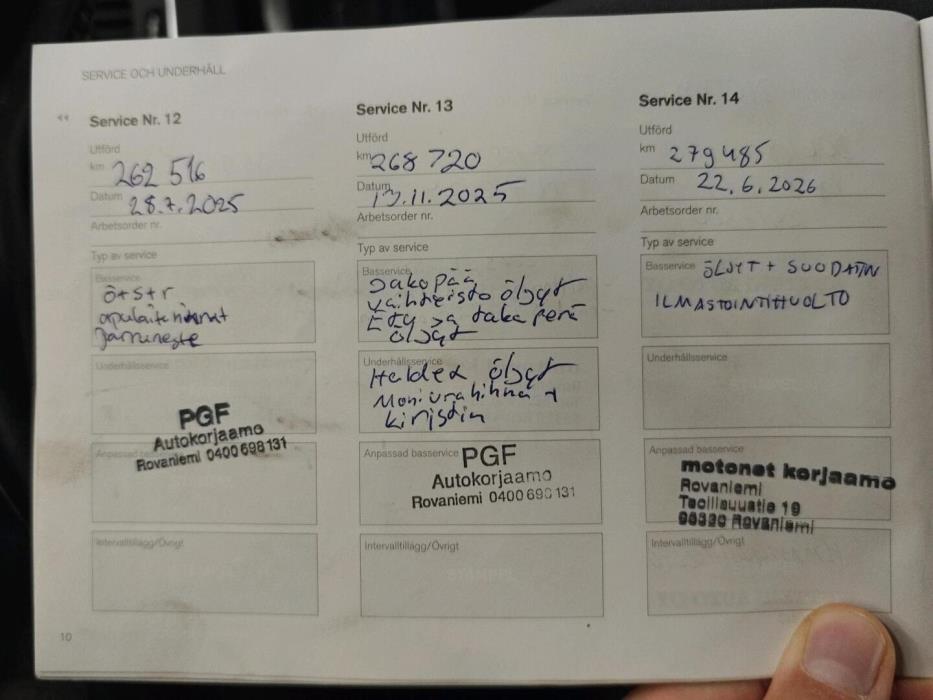 SERVICE OCH UNDERHÅLL
Service Nr. 12
Utförd
km 262 516
Datum 28.7.2025
Arbetsorder nr.
Typ av service
Basservice
ö+s+r
apulaitehihnat
Jarruneste
Underhållsservice
PGF
Autokorjaamo
Rovaniemi 0400 698 131
Anpassad basservice
Intervalltillägg/Övrigt
Service Nr. 13
Utförd
km 268 720
Datum 13.11.2025
Arbetsorder nr.
Typ av service
Basservice
Jakopää
vaihteisto öljyt
Etu ja taka perä
öljyt
Underhållsservice
Haldex öljyt
Moniurahihna +
kiristin
Anpassad basservice
PGF
Autokorjaamo
Rovaniemi 0400 698 131
Intervalltillägg/Övrigt
Service Nr. 14
Utförd
km 279485
Datum 22.6.2026
Arbetsorder nr.
Typ av service
Basservice ÖLJYT + SUODATIN
ILMASTOINTIHUOLTO
Underhållsservice
Anpassad basservice
motonet korjaamo
Rovaniemi
Teollisuustie 19
96320 Rovaniemi
Intervalltillägg/Övrigt
10